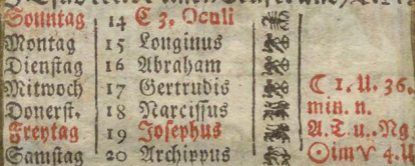 Sonntag 14 C 3. Oculi
Montag 15 Longinus
Dienstag 16 Abraham
Mitwoch 17 Gertrudis ☾ 1. U. 36.
Donerst. 18 Narcissus min. n.
Freytag 19 Josephus A. T. u. Ng
Samstag 20 Archippus ☉ im ♈ 4. U.